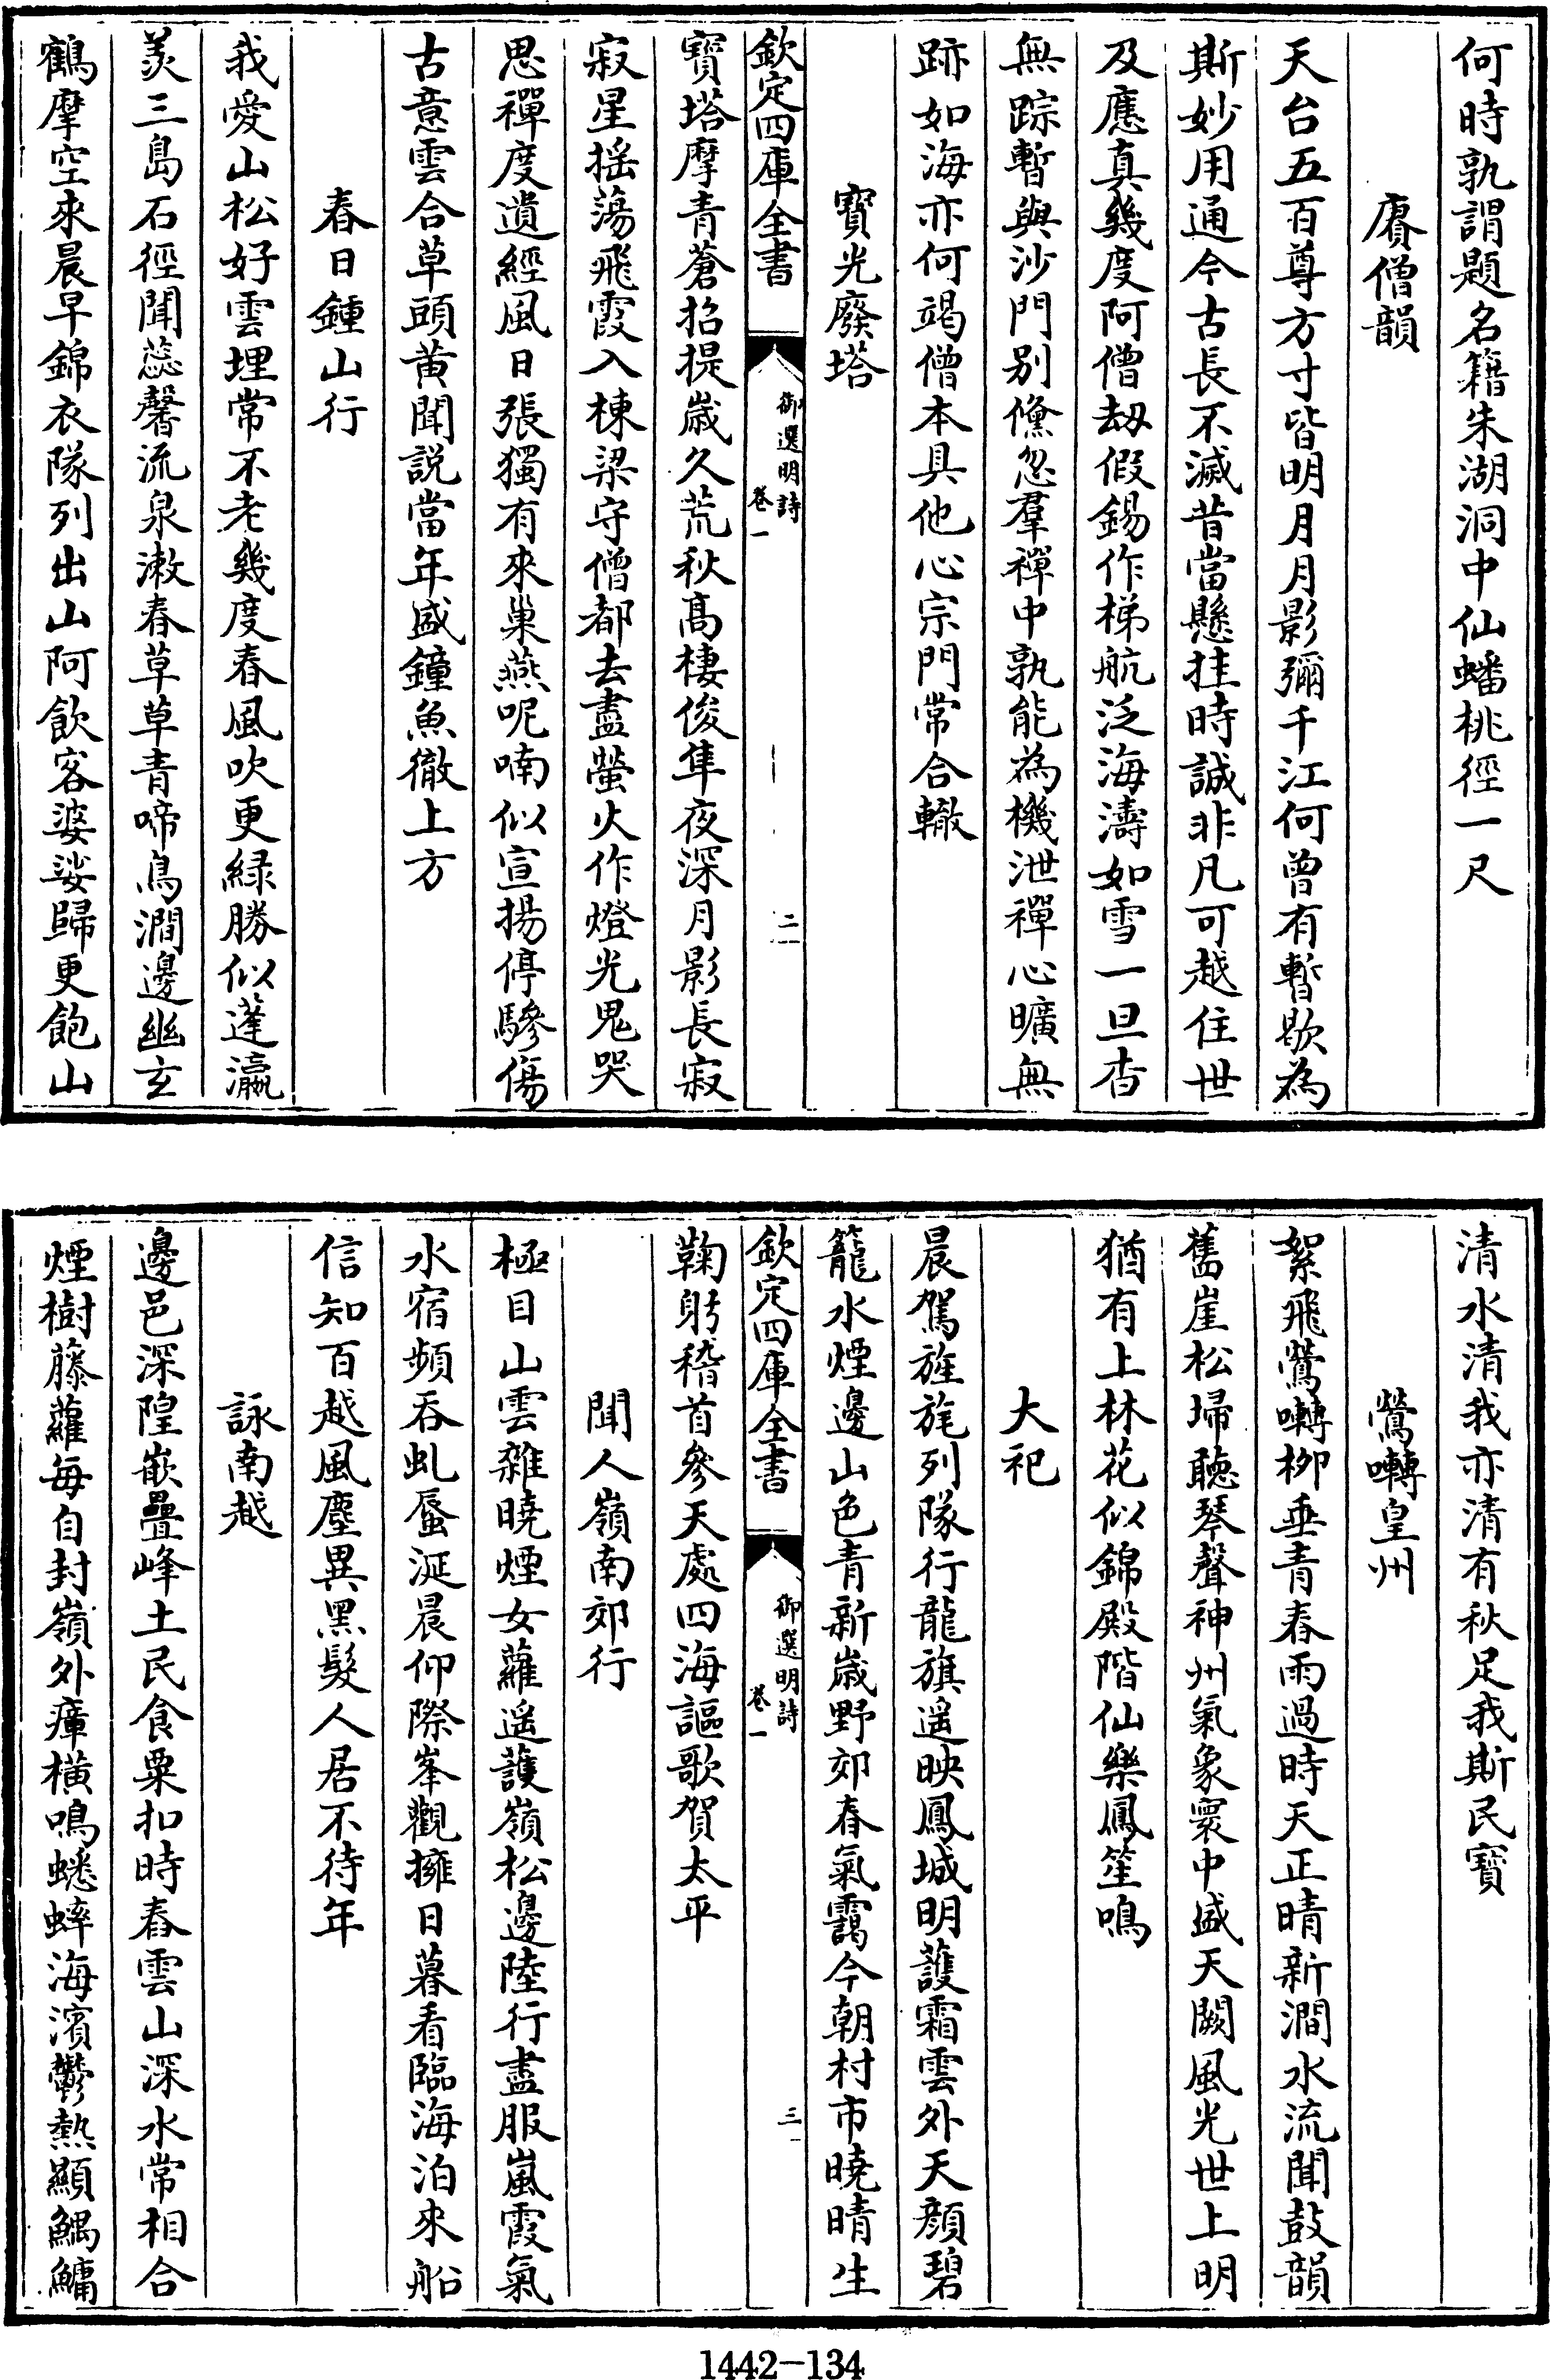 何時孰謂題名籍朱湖洞中仙蟠桃徑一尺
賡僧韻
天台五百尊方寸皆明月月影彌千江何曾有暫歇為
斯妙用通今古長不滅昔當懸挂時誠非凡可越住世
及應真幾度阿僧劫假錫作梯航泛海濤如雪一旦杳
無踪暫與沙門别儵忽羣禪中孰能為機泄禪心曠無
跡如海亦何竭僧本具他心宗門常合轍
寶光廢塔
欽定四庫全書
御選明詩
卷一
二
寶塔摩青蒼招提歲久荒秋髙棲俊隼夜深月影長寂
寂星揺蕩飛霞入棟梁守僧都去盡螢火作燈光鬼哭
思禪度遺經風日張獨有來巢燕呢喃似宣揚停驂傷
古意雲合草頭黄聞説當年盛鐘魚徹上方
春日鍾山行
我愛山松好雲埋常不老幾度春風吹更緑勝似蓬瀛
羡三島石徑聞蕊馨流泉潄春草草青啼鳥澗邊幽玄
鶴摩空來晨早錦衣隊列出山阿飲客婆娑歸更飽山
清水清我亦清有秋足我斯民寶
鶯囀皇州
絮飛鶯囀栁垂青春雨過時天正晴新澗水流聞鼓韻
舊崖松埽聽琴聲神州氣象寰中盛天闕風光世上明
猶有上林花似錦殿階仙樂鳳笙鳴
大祀
晨駕旌旄列隊行龍旗遥映鳳城明䕶霜雲外天顔碧
籠水煙邊山色青新歲野郊春氣靄今朝村市曉晴生
欽定四庫全書
御選明詩
卷一
三
鞠躬稽首參天處四海謳歌賀太平
聞人嶺南郊行
極目山雲雜曉煙女蘿遥䕶嶺松邊陸行盡服嵐霞氣
水宿頻吞虬蜃涎晨仰際峯觀擁日暮看臨海泊來船
信知百越風塵異黑髮人居不待年
詠南越
邊邑深隍嵌疊峰土民食粟扣時舂雲山深水常相合
煙樹籐蘿每自封嶺外瘴横鳴蟋蟀海濱鬱熱顯鰅鱅
1442-134